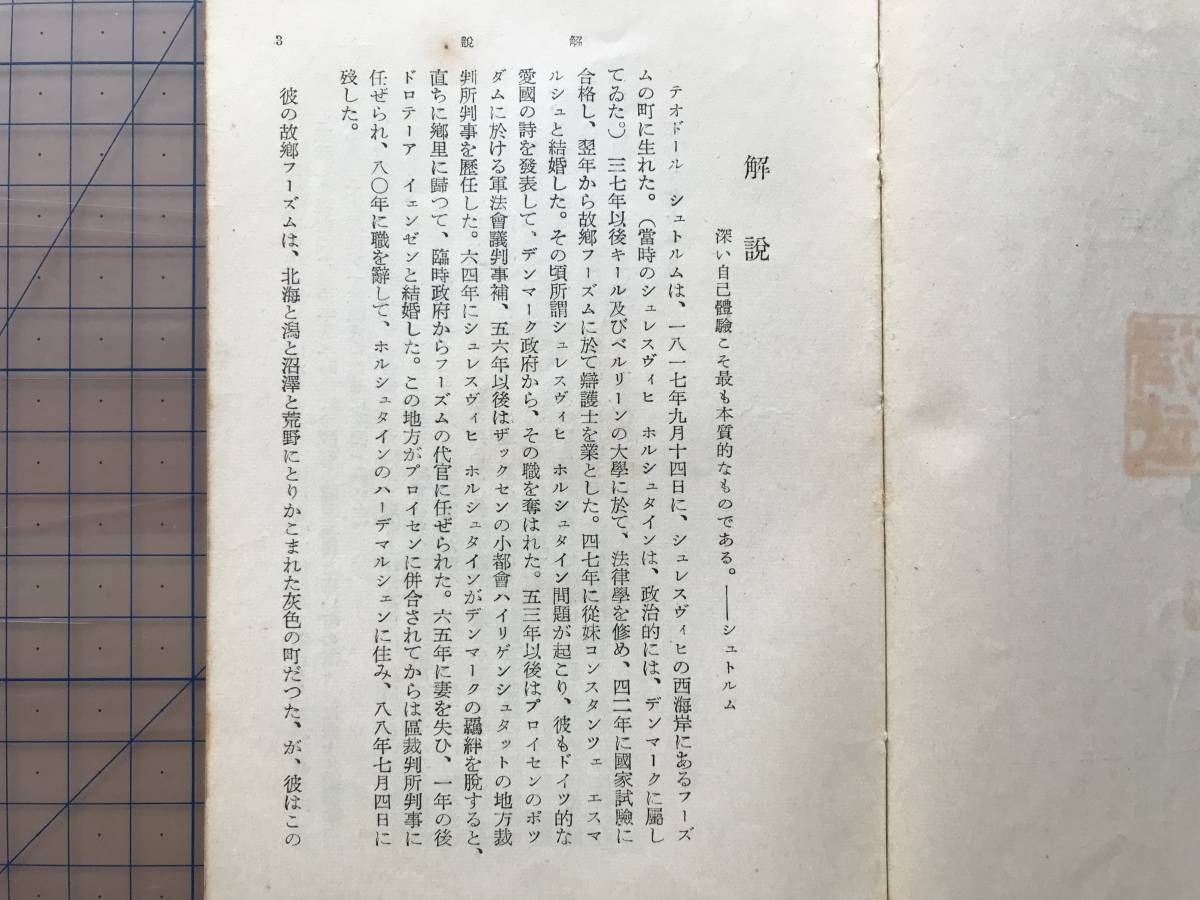 解說
深い自己體驗こそ最も本質的なものである。——シュトルム
テオドール シュトルムは、一八一七年九月十四日に、シュレスヴィヒの西海岸にあるフーズ
ムの町に生れた。（當時のシュレスヴィヒ ホルシュタインは、政治的には、デンマークに屬し
てゐた。） 三七年以後キール及びベルリーンの大學に於て、法律學を修め、四二年に國家試驗に
合格し、翌年から故鄕フーズムに於て辯護士を業とした。四七年に從妹コンスタンツェ エスマ
ルシュと結婚した。その頃所謂シュレスヴィヒ ホルシュタイン問題が起こり、彼もドイツ的な
愛國の詩を發表して、デンマーク政府から、その職を奪はれた。五三年以後はプロイセンのポツ
ダムに於ける軍法會議判事補、五六年以後はザックセンの小都會ハイリゲンシュタットの地方裁
判所判事を歷任した。六四年にシュレスヴィヒ ホルシュタインがデンマークの羈絆を脫すると、
直ちに鄕里に歸つて、臨時政府からフーズムの代官に任ぜられた。六五年に妻を失ひ、一年の後
ドロテーア イェンゼンと結婚した。この地方がプロイセンに併合されてからは區裁判所判事に
任ぜられ、八〇年に職を辭して、ホルシュタインのハーデマルシェンに住み、八八年七月四日に
歿した。
彼の故鄕フーズムは、北海と潟と沼澤と荒野にとりかこまれた灰色の町だつた、が、彼はこの
解說
3